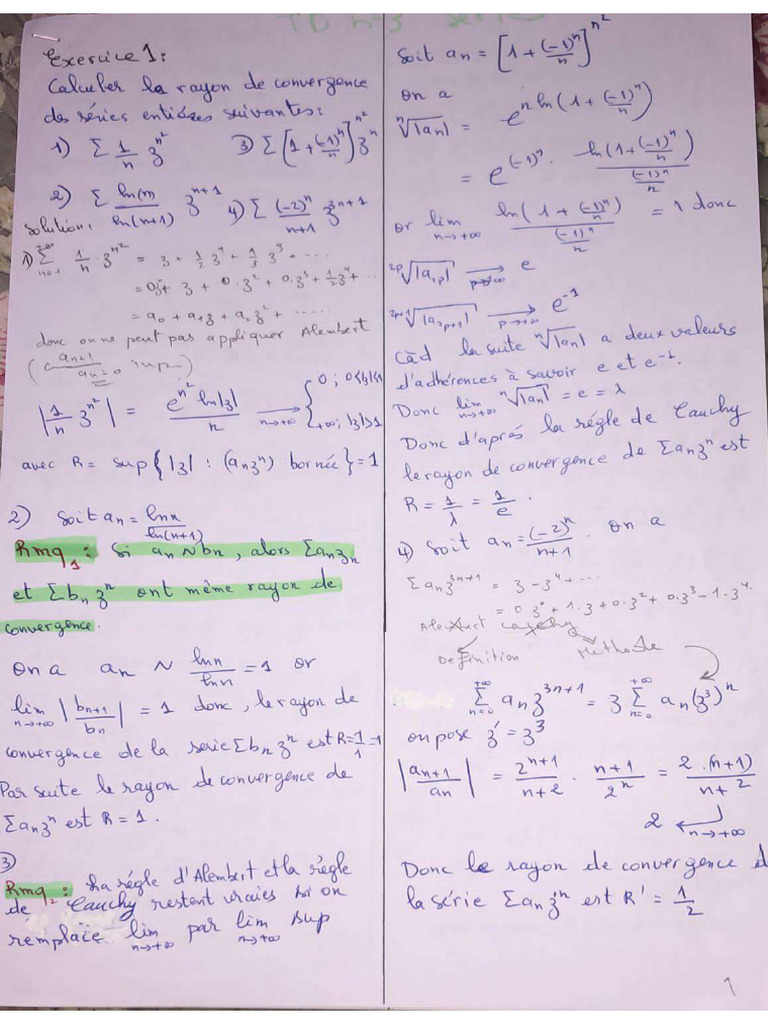 TD n°3 series
Exercice 1:
Calculer le rayon de convergence
des séries entières suivantes:
1) Σ 1/n z^{n^2} 3) Σ [1 + (-1)^n/n]^{n^2} z^n
2) Σ ln(n)/ln(n+1) z^{n+1} 4) Σ (-2)^n/(n+1) z^{3n+1}
Solution:
1) Σ_{n=1}^{+∞} 1/n · z^{n^2} = z + 1/2 z^4 + 1/3 z^9 + ...
= 0z^0 + z + 0·z^2 + 0·z^3 + 1/2 z^4 + ...
= a_0 + a_1 z + a_2 z^2 + ......
donc on ne peut pas appliquer Alembert
( a_{n+1}/a_n = 0 imp )
|1/n z^{n^2}| = e^{n^2 ln|z|}/n →_{n→+∞} { 0 ; 0<|z|<1
+∞ ; |z|>1
avec R = sup{|z| : (a_n z^n) bornée} = 1
2) Soit a_n = ln n/ln(n+1)
Rmq_1 : Si a_n ~ b_n , alors Σ a_n z^n
et Σ b_n z^n ont même rayon de
convergence.
On a a_n ~ ln n/ln n = 1 or
lim_{n→+∞} |b_{n+1}/b_n| = 1 donc, le rayon de
convergence de la serie Σ b_n z^n est R = 1/1 = 1
Par suite le rayon de convergence de
Σ a_n z^n est R = 1.
3)
Rmq_2 : La régle d'Alembert et la régle
de Cauchy restent vraies si on
remplace lim_{n→+∞} par lim_{n→+∞} sup
Soit a_n = [1 + (-1)^n/n]^{n^2}
on a
ⁿ√|a_n| = e^{n ln(1 + (-1)^n/n)}
= e^{(-1)^n · ln(1 + (-1)^n/n)/((-1)^n/n)}
or lim_{n→+∞} ln(1 + (-1)^n/n)/((-1)^n/n) = 1 donc
²ᵖ√|a_{2p}| →_{p→+∞} e
²ᵖ⁺¹√|a_{2p+1}| →_{p→+∞} e^{-1}
càd la suite ⁿ√|a_n| a deux valeurs
d'adhérences à savoir e et e^{-1}.
Donc lim_{n→+∞} ⁿ√|a_n| = e = λ
Donc d'aprés la régle de Cauchy
le rayon de convergence de Σ a_n z^n est
R = 1/λ = 1/e .
4) Soit a_n = (-2)^n/(n+1) . on a
Σ a_n z^{3n+1} = z - z^4 + ...
= 0z^0 + 1·z + 0·z^2 + 0·z^3 - 1·z^4.
Alembert Cauchy
Definition Methode
Σ_{n=0}^{+∞} a_n z^{3n+1} = z Σ_{n=0}^{+∞} a_n (z^3)^n
on pose z' = z^3
|a_{n+1}/a_n| = 2^{n+1}/(n+2) · (n+1)/2^n = 2·(n+1)/(n+2)
2 ←_{n→+∞}
Donc le rayon de convergence d
la série Σ a_n z'^n est R' = 1/2
1